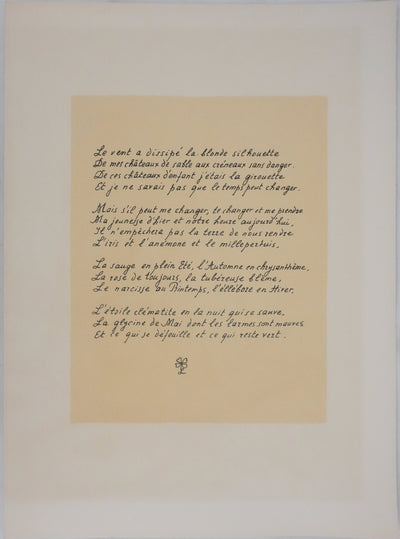 Le vent a dissipé la blonde silhouette
De mes châteaux de sable aux créneaux sans danger.
De ces châteaux d'enfant j'étais la girouette
Et je ne savais pas que le temps peut changer.
Mais s'il peut me changer, te changer et me prendre
Ma jeunesse d'hier et notre heure aujourd'hui,
Il n'empêchera pas la terre de nous rendre
L'iris et l'anémone et le millepertuis.
La sauge en plein Eté, l'Automne en chrysanthème,
La rose de toujours, la tubéreuse blême,
Le narcisse au Printemps, l'éllébore en Hiver.
L'étoile clématite en la nuit qui se sauve,
La glycine de Mai dont les larmes sont mauves
Et ce qui se défeuille et ce qui reste vert.